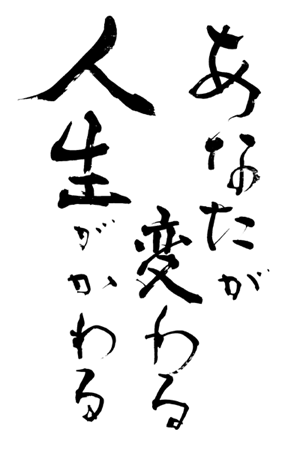 あなたが
変わる
人生がかわる